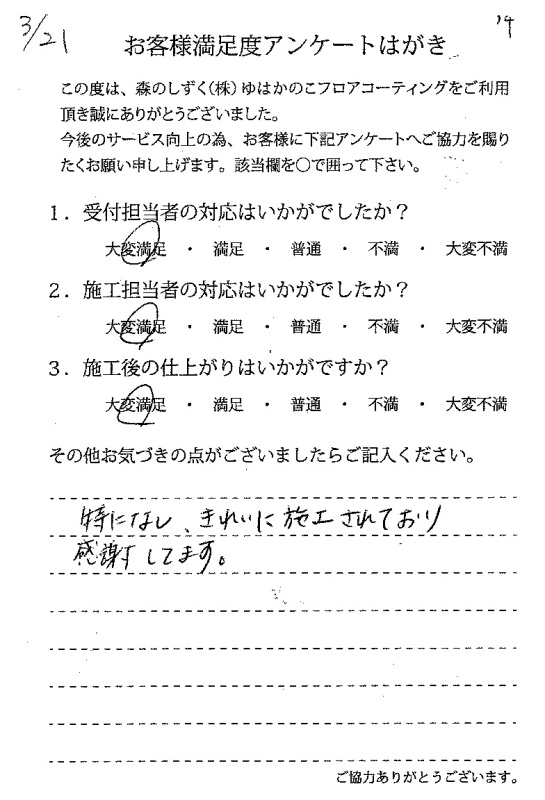 3/21 '14
お客様満足度アンケートはがき
この度は、森のしずく(株)ゆはかのこフロアコーティングをご利用
頂き誠にありがとうございました。
今後のサービス向上の為、お客様に下記アンケートへご協力を賜り
たくお願い申し上げます。該当欄を○で囲って下さい。
1．受付担当者の対応はいかがでしたか？
大変満足 ・ 満足 ・ 普通 ・ 不満 ・ 大変不満
2．施工担当者の対応はいかがでしたか？
大変満足 ・ 満足 ・ 普通 ・ 不満 ・ 大変不満
3．施工後の仕上がりはいかがですか？
大変満足 ・ 満足 ・ 普通 ・ 不満 ・ 大変不満
その他お気づきの点がございましたらご記入ください。
特になし、きれいに施工されており
感謝してます。
ご協力ありがとうございます。